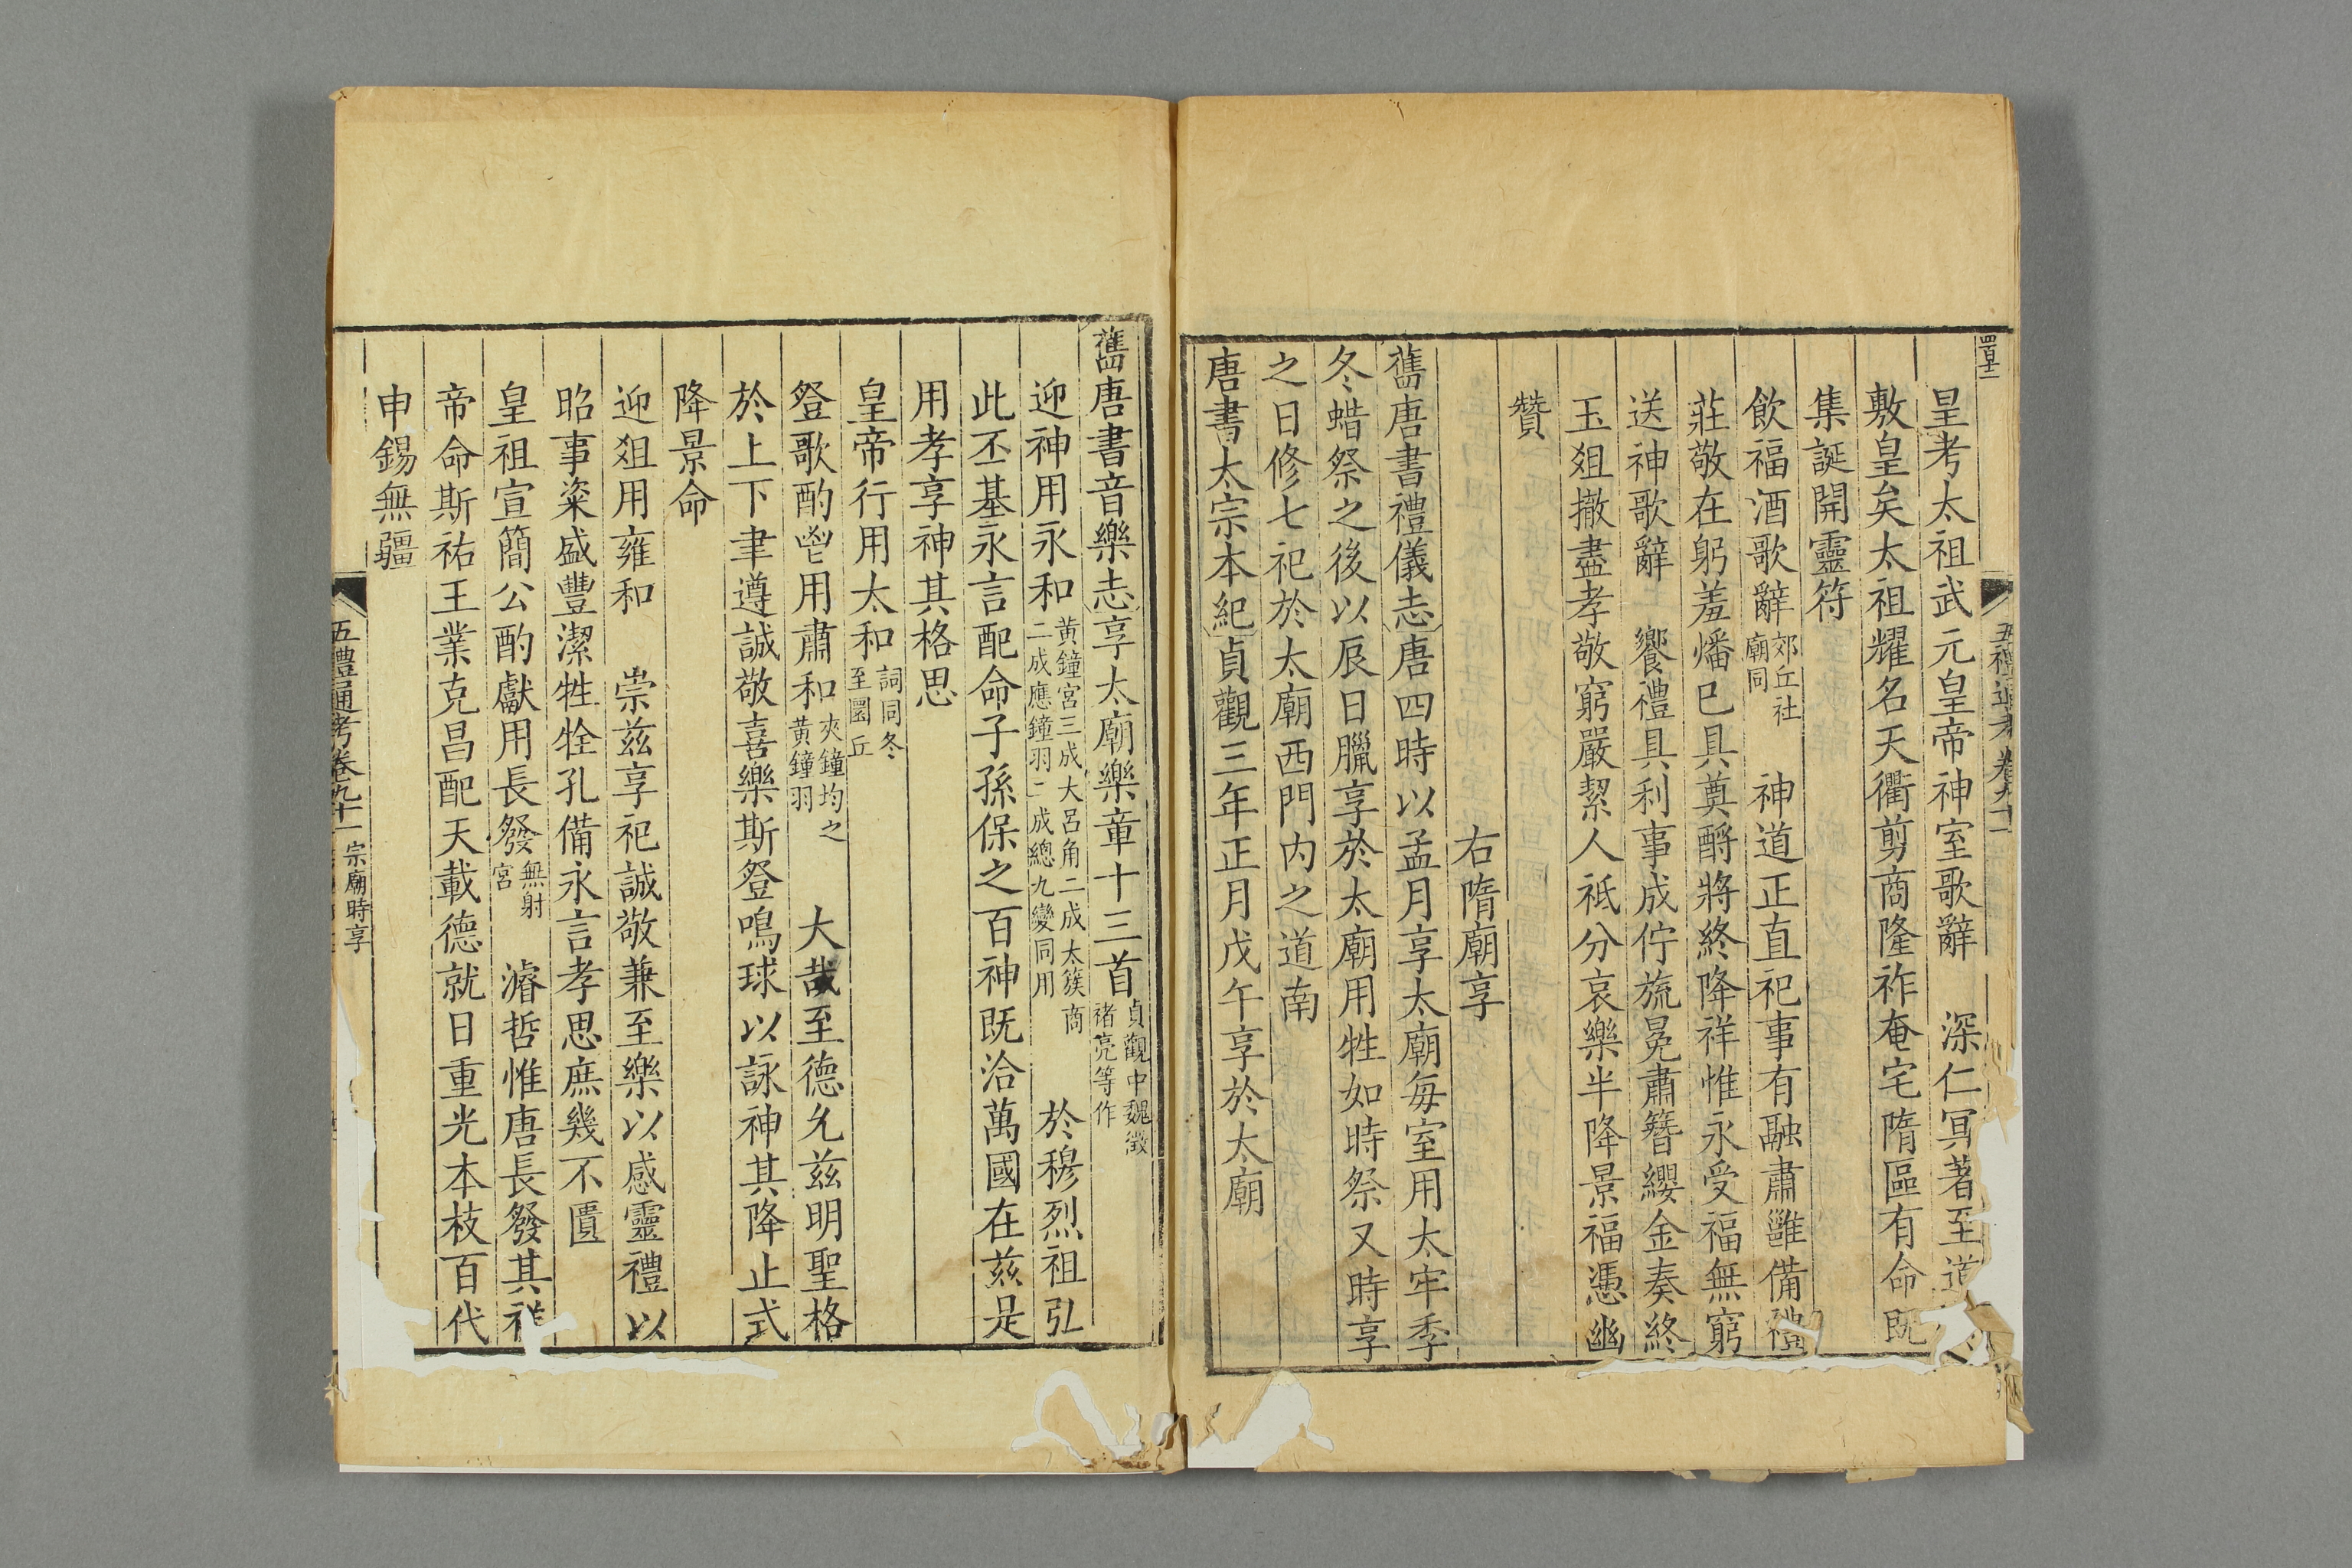 皇考太祖武元皇帝神室歌辭　深仁冥著至道
敷皇矣太祖耀名天衢剪商隆祚奄宅隋區有命既
集誕開靈符
飲福酒歌辭郊丘社廟同　神道正直祀事有融肅雝備禮
莊敬在躬羞燔已具奠酹將終降祥惟永受福無窮
送神歌辭　饗禮具利事成佇旒冕肅簪纓金奏終
玉俎撤盡孝敬窮嚴絜人祗分哀樂半降景福憑幽
贊
右隋廟享
舊唐書禮儀志唐四時以孟月享太廟每室用太牢季
冬蜡祭之後以辰日臘享於太廟用牲如時祭又時享
之日修七祀於太廟西門內之道南
唐書太宗本紀貞觀三年正月戊午享於太廟
舊唐書音樂志享太廟樂章十三首貞觀中魏徵褚亮等作
迎神用永和黃鐘宮三成大呂角二成太簇商二成應鐘羽二成總九變同用　於穆烈祖弘
此丕基永言配命子孫保之百神既洽萬國在茲是
用孝享神其格思
皇帝行用太和詞同冬至圜丘
登歌酌鬯用肅和夾鐘均之黃鐘羽　大哉至德允茲明聖格
於上下聿遵誠敬喜樂斯登鳴球以詠神其降止式
降景命
迎俎用雍和　崇茲享祀誠敬兼至樂以感靈禮以
昭事粢盛豐潔牲牷孔備永言孝思庶幾不匱
皇祖宣簡公酌獻用長發無射宮　濬哲惟唐長發其祥
帝命斯祐王業克昌配天載德就日重光本枝百代
申錫無疆
五禮通考卷九十一宗廟時享